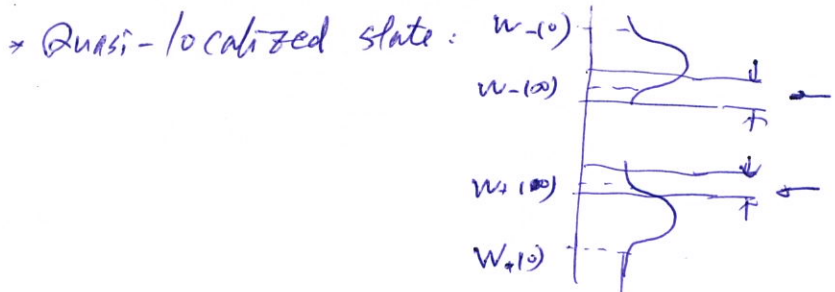 * Quasi-localized state: W-(0)
W-(∞)
W+(∞)
W+(0)